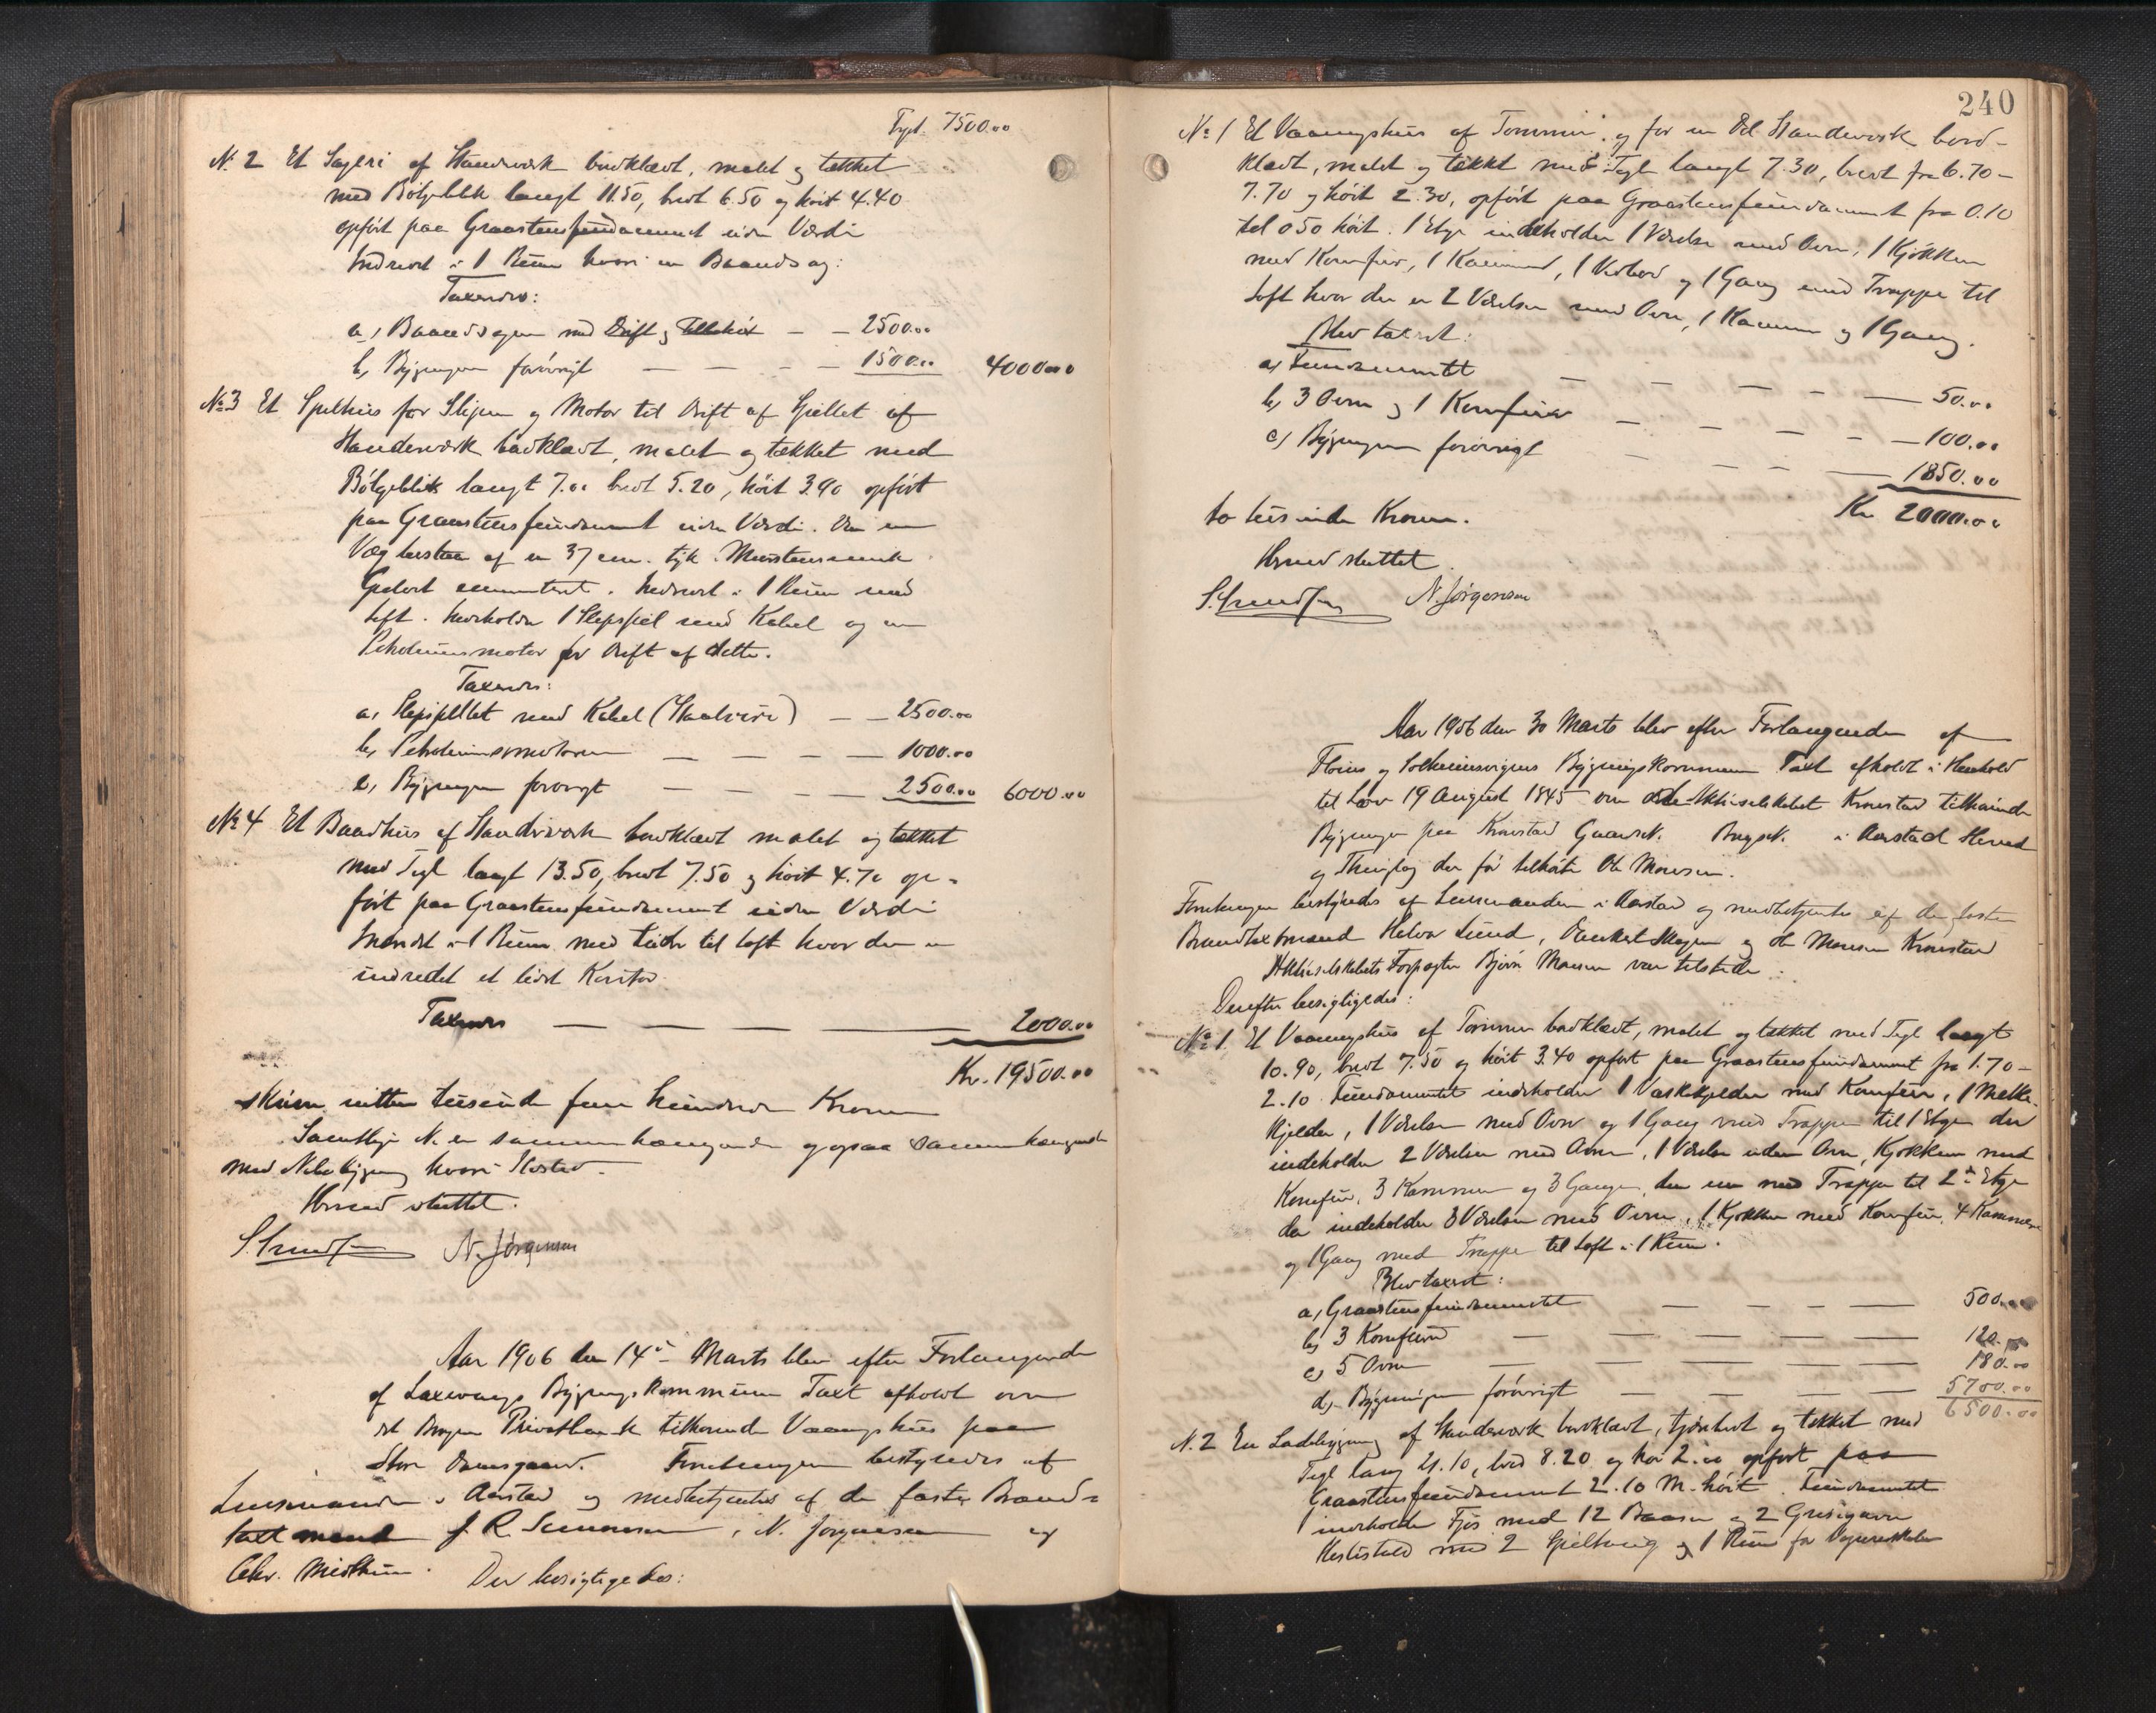 Trpt. 7500.00
No 2 Et Sageri af Standerværk bordklædt, malet og tækket
med Bölgeblik langt 11.50, bredt 6.50 og höit 4.40
opfört paa Graastensfundament uden Værdi
Indredet i 1 Rum hvori en Baandsag:
Taxeredes:
a, Baandsagen med Drift og Tilbehör — — 2500.00
b, Bygningen forövrigt — — — — 1500.00 4000.00
No 3 Et Spilhus for Slippen og Motor til Drift af Spillet af
Standerværk bordklædt, malet og tækket med
Bölgeblik langt 7.00 bredt 5.20, höit 3.90 opfört
paa Graastensfundament uden Værdi. Den ene
Væg bestaar af en 37 cm. tyk Murstensmur
Gulvet cementeret. Indredet i 1 Rum med
Loft. Indeholder 1 Slipspil med Kabel og en
Petroleumsmotor for Drift af dette.
Taxeredes:
a, Slipspillet med Kabel (Staalwire) — — 2500.00
b, Petroleumsmotoren — — — — 1000.00
c, Bygningen forövrigt — — — — 2500.00 6000.00
No 4 Et Baadhus af Standerværk bordklædt malet og tækket
med Tegl langt 13.50, bredt 7.50 og höit 4.70 op-
fört paa Graastensfundament uden Værdi
Indredet i 1 Rum med Leider til Loft hvor der er
indredet et lidet Kontor.
Taxeredes — — — — 2000.00
Kr. 19500.00
skriver nitten tusinde fem hundrede Kroner
Samtlige No er sammenhængende og ogsaa sammenhængende
med Nabobygning hvori Ildsted.
Hermed sluttet.
N. Jörgensen
Aar 1906 den 14de Marts blev efter Forlangende
af Laxevaags Bygningskommune Taxt afholdt over
det Bergen Privatbank tilhörende Vaaningshus paa
Store Damsgaard. Forretningen bestyredes af
Lensmanden i Aarstad og medbetjentes af de faste Brand-
taxtmænd J. R. Simonsen, N. Jörgensen og
Chr. Midthun. Der besigtigedes:
240
No 1 Et Vaaningshus af Tömmer og for en Del Standerværk bord-
klædt, malet og tækket med Tegl langt 7.30, bredt fra 6.70 –
7.70 og höit 2.30, opfört paa Graastensfundament fra 0.10
til 0.50 höit. 1 Etage indeholder 1 Værelse med Ovn, 1 Kjökken
med Komfur, 1 Kammer, 1 Vedbod og 1 Gang med Trappe til
Loft hvor der er 2 Værelser med Ovn, 1 Kammer og 1 Gang.
Blev taxeret:
a, Fundamentet — — — — 50.00
b, 3 Ovne og 1 Komfur — — — — 100.00
c, Bygningen forövrigt — — — — 1850.00
Kr 2000.00
to tusinde Kroner.
Hermed sluttet.
N. Jörgensen
Aar 1906 den 30 Marts blev efter Forlangende af
Florvaag og Solheimsvigens Bygningskommune Taxt afholdt i Henhold
til Lov 19 August 1845 over det Aktieselskabet Kronstad tilhörende
Bygninger paa Kronstad Gaardsn. Brugsn. i Aarstad Herred
og Thinglag der för tilhörte Ole Monsen.
Forretningen bestyredes af Lensmanden i Aarstad og medbetjentes af de faste
Brandtaxtmænd Halvor Lund, Skagen og Ole Monsen Kronstad
Aktieselskabets Forpagter Björn Monsen var tilstede.
Derefter besigtigedes:
No 1. Et Vaaningshus af Tömmer bordklædt, malet og tækket med Tegl langt
10.90, bredt 7.50 og höit 3.40 opfört paa Graastensfundament fra 1.70 –
2.10. Fundamentet indeholder 1 Vaskekjelder med Komfur, 1 Melke-
kjelder, 1 Værelse med Ovn og 1 Gang med Trappe til 1 Etage der
indeholder 2 Værelser med Ovne, 1 Værelse uden Ovn, Kjökken med
Komfur, 3 Kammere og 3 Gange, den ene med Trappe til 2den Etage
der indeholder 3 Værelser med Ovne, 1 Kjökken med Komfur, 4 Kammere
og 1 Gang med Trappe til Loft i 1 Rum.
Blev taxeret:
a, Graastensfundamentet — — — — 500.00
b, 3 Komfurer — — — — 120.00
c, 5 Ovne — — — — 180.00
d, Bygningen forövrigt — — — — 5700.00
6500.00
No 2 En Ladebygning af Standerværk bordklædt, tjærebredt og tækket med
Tegl lang 21.10, bred 8.20 og höi 2.00 opfört paa
Graastensfundament 2.10 M. höit. Fundamentet
indeholder Fjös med 12 Baaser og 2 Grisegarer
Hestestald med 2 Spiltoug og 1 Rum for Vognredskaber